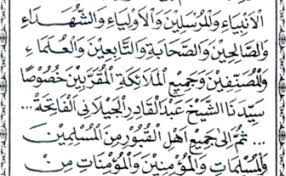 الْاَنْبِيَاءِ وَالْمُرْسَلِيْنَ وَالْاَوْلِيَاءِ وَالشُّهَدَاءِ
وَالصَّالِحِيْنَ وَالصَّحَابَةِ وَالتَّابِعِيْنَ وَالْعُلَمَاءِ
وَالْمُصَنِّفِيْنَ وَجَمِيْعِ الْمَلَائِكَةِ الْمُقَرَّبِيْنَ خُصُوْصًا
سَيِّدَنَا الشَّيْخَ عَبْدَ الْقَادِرِ الْجَيْلَانِي اَلْفَاتِحَةْ ...
... ثُمَّ اِلَى جَمِيْعِ اَهْلِ الْقُبُوْرِ مِنَ الْمُسْلِمِيْنَ
وَالْمُسْلِمَاتِ وَالْمُؤْمِنِيْنَ وَالْمُؤْمِنَاتِ مِنْ